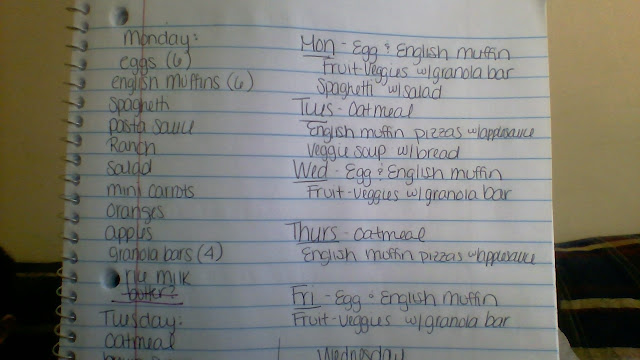 Monday:
eggs (6)
english muffins (6)
spaghetti
pasta sauce
Ranch
salad
mini carrots
oranges
apples
granola bars (4)
rice milk
butter?
Tuesday:
oatmeal
Mon - Egg & English muffin
Fruit-Veggies w/granola bar
Spaghetti w/salad
Tues - Oatmeal
English muffin pizzas w/applesauce
Veggie soup w/bread
Wed - Egg & English muffin
Fruit-Veggies w/granola bar
Thurs - Oatmeal
English muffin pizzas w/applesauce
Fri - Egg & English muffin
Fruit-Veggies w/granola bar
Wednesday